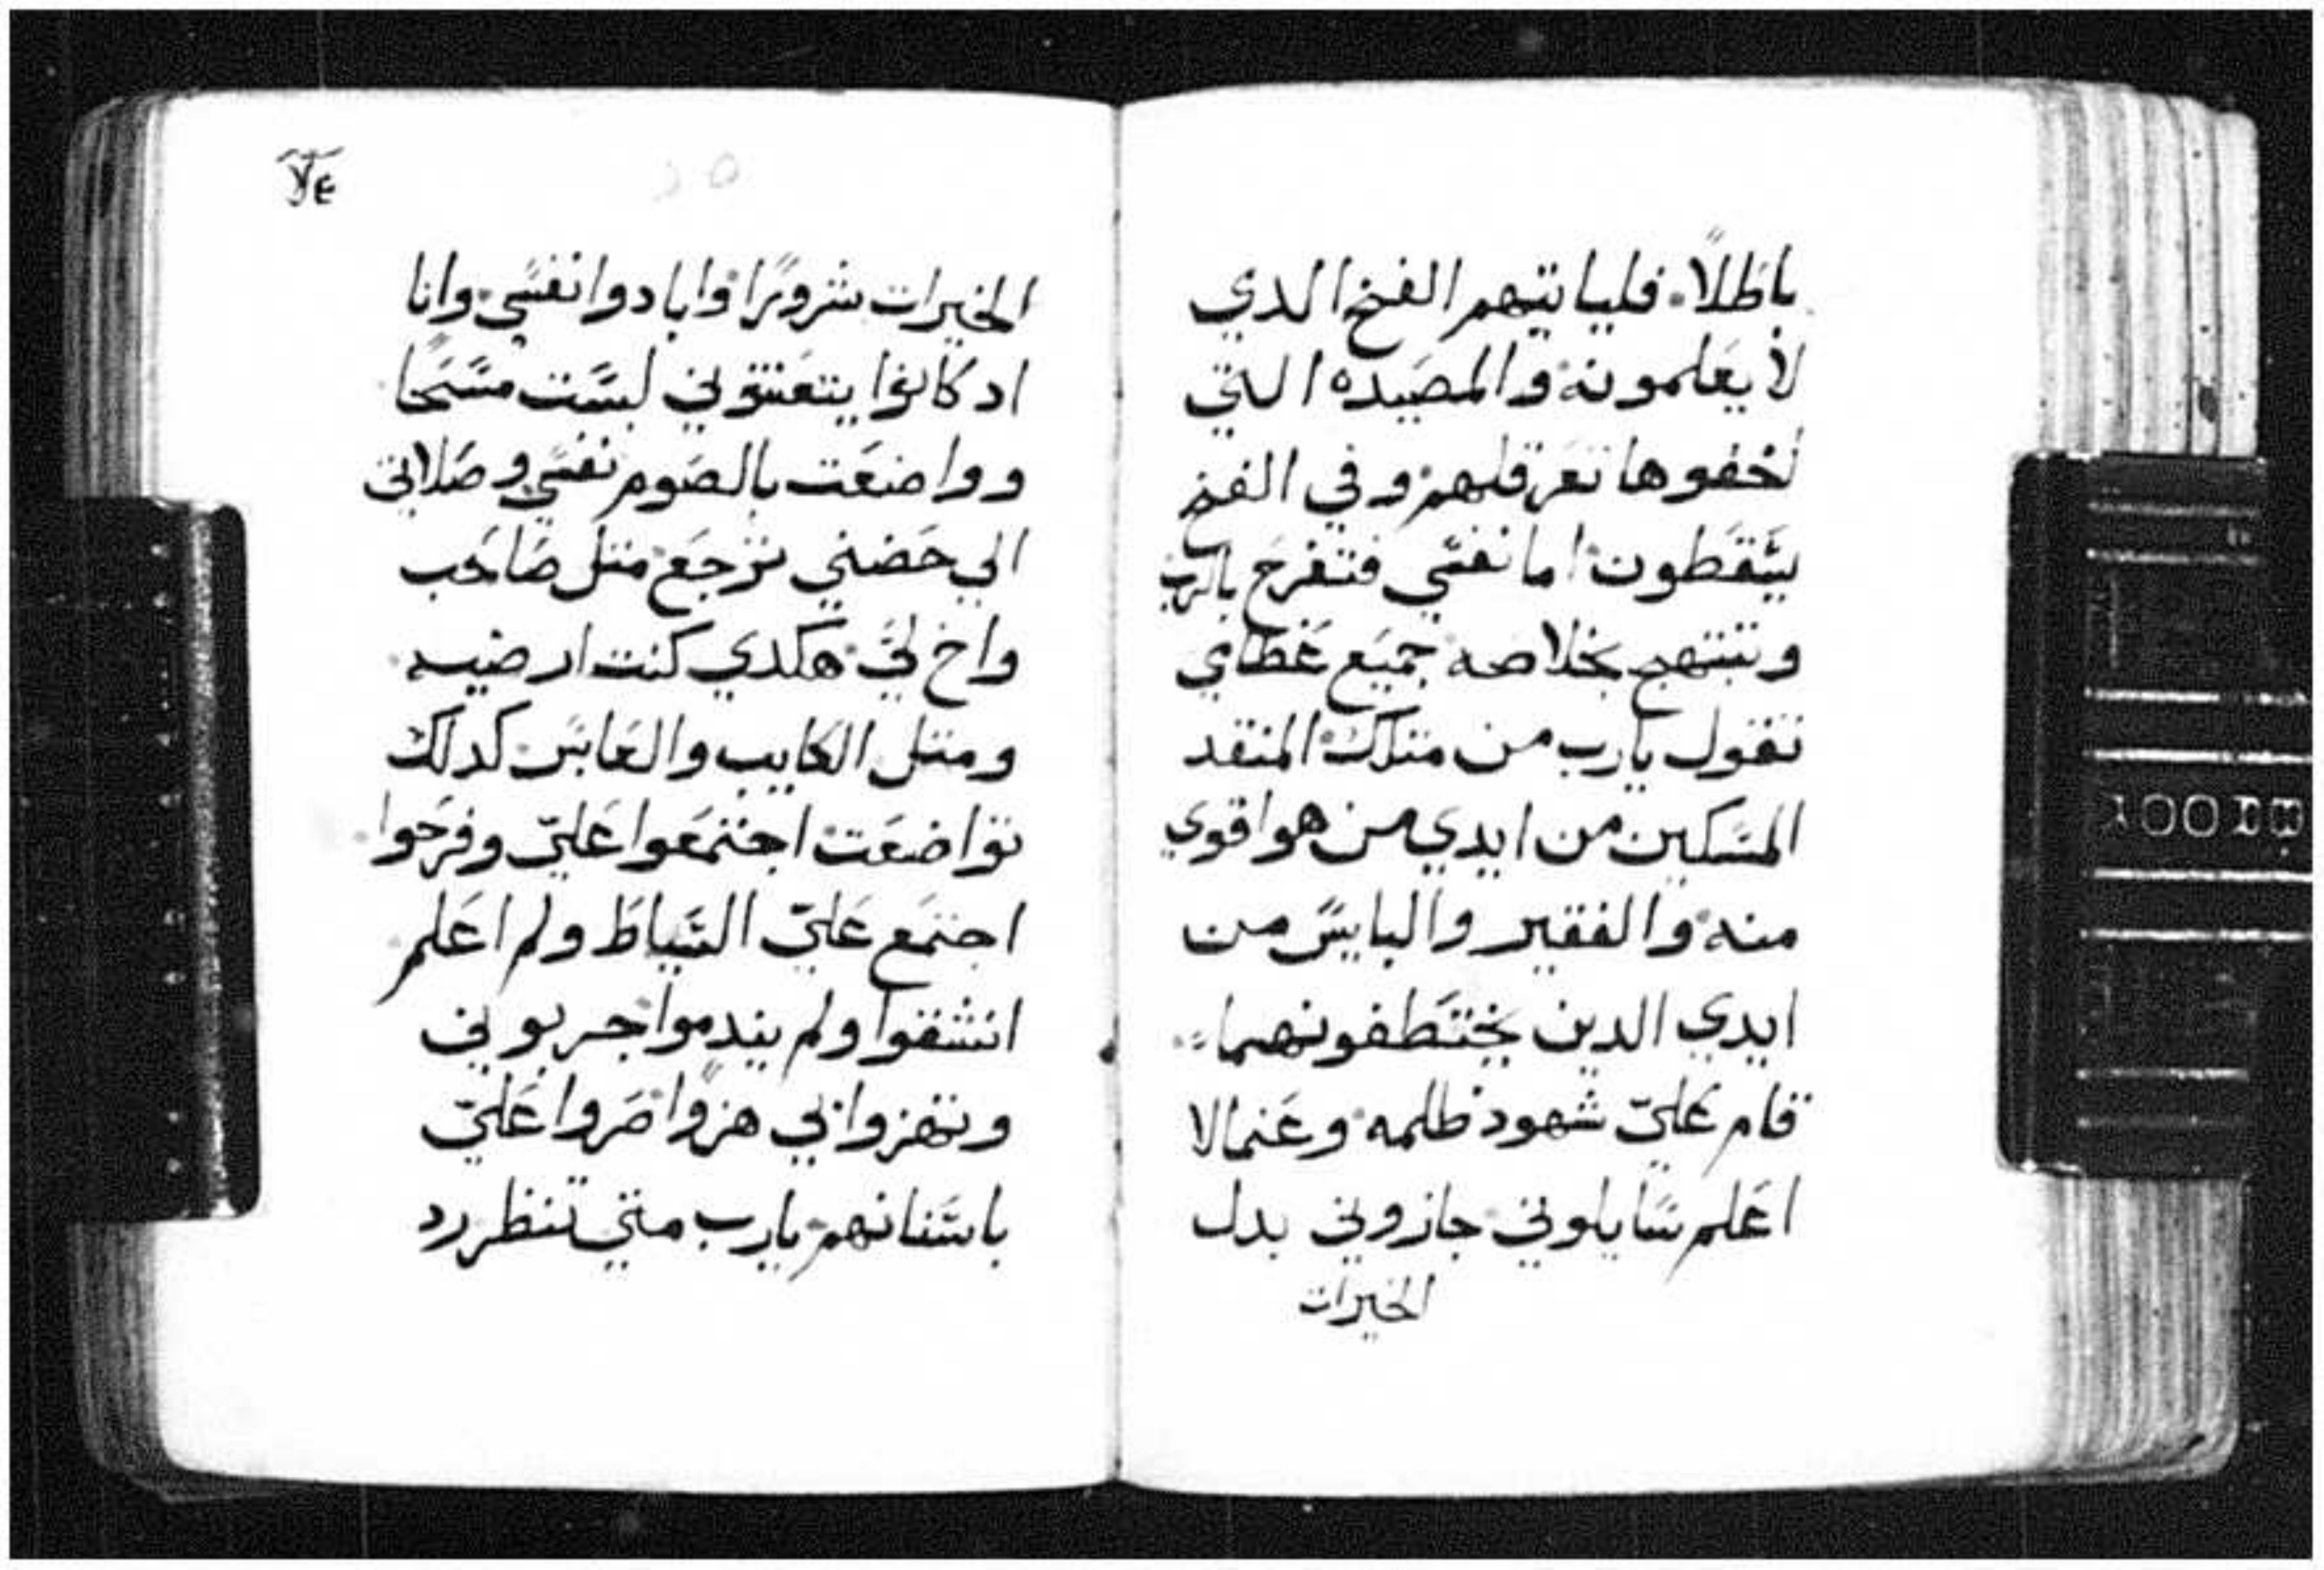 باطلاً. فلياتيهم الفخ الدي
لا يعلمونه والمصيده التي
اخفوها تعرقلهم وفي الفخ
يسقطون اما نفسي فتفرح بالرب
وتبتهج بخلاصه جميع عظامي
تقول يارب من متلك المنقد
المسكين من ايدي من هو اقوي
منه والفقير والبايس من
ايدي الدين يختطفونهما
قام عليّ شهود ظلمه وعنمالا
اعلم سايلوني جازوني بدل
الخيرات
الخيرات شرورًا وابادوا نفسي وانا
اد كانوا يتعنتوني لبست مسحًا
وواضعت بالصوم نفسي وصلاتي
الي حضني ترجع متل صاحب
واخ لي هكدي كنت ارضيه
ومتل الكايب والعابس كدلك
تواضعت اجتمعوا عليّ وفرحوا
اجتمع عليّ السياط ولم اعلم
انشقوا ولم يندموا جربوني
وتهزوا بي هزوًا صروا عليّ
باسنانهم يارب متي تنظر رد